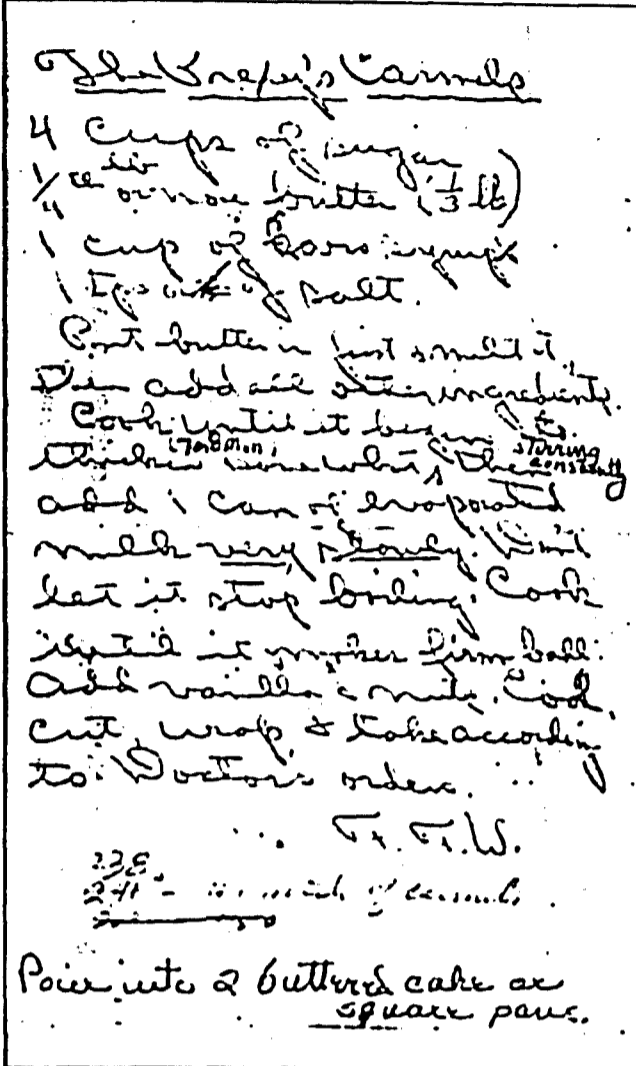 The Carmels
4 Cups of sugar
1/4 lb or more butter (1/3 lb)
1 cup of Karo syrup
1 tsp of salt.
Put butter in first & melt it.
Then add all other ingredients.
Cook until it begins to
thicken somewhat, then stirring constantly
add 1 can of evaporated
milk very slowly. Don't
let it stop boiling. Cook
until it makes firm ball.
Add vanilla & nuts. Cool,
cut, wrap, & take according
to Doctors orders.
F. F. W.
Pour into 2 buttered cake or
square pans.